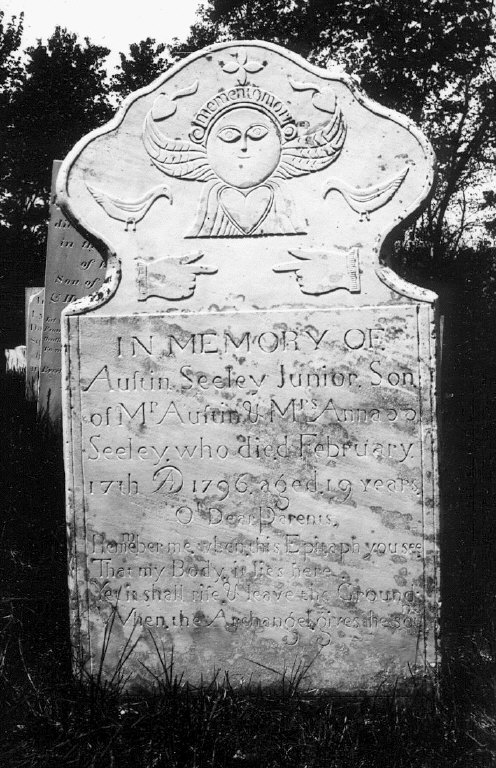 memento mori
IN MEMORY OF
Auſtin Seeley Junior, Son
of Mr Auſtin & Mrs Anna
Seeley, who died February
17th AD 1796, aged 19 years
O Dear Parents,
Remember me, when this Epitaph you see
That my Body, it lies here
Yet it shall riſe & leave the Ground
When the Archangel gives the
died
in th
of
Son of